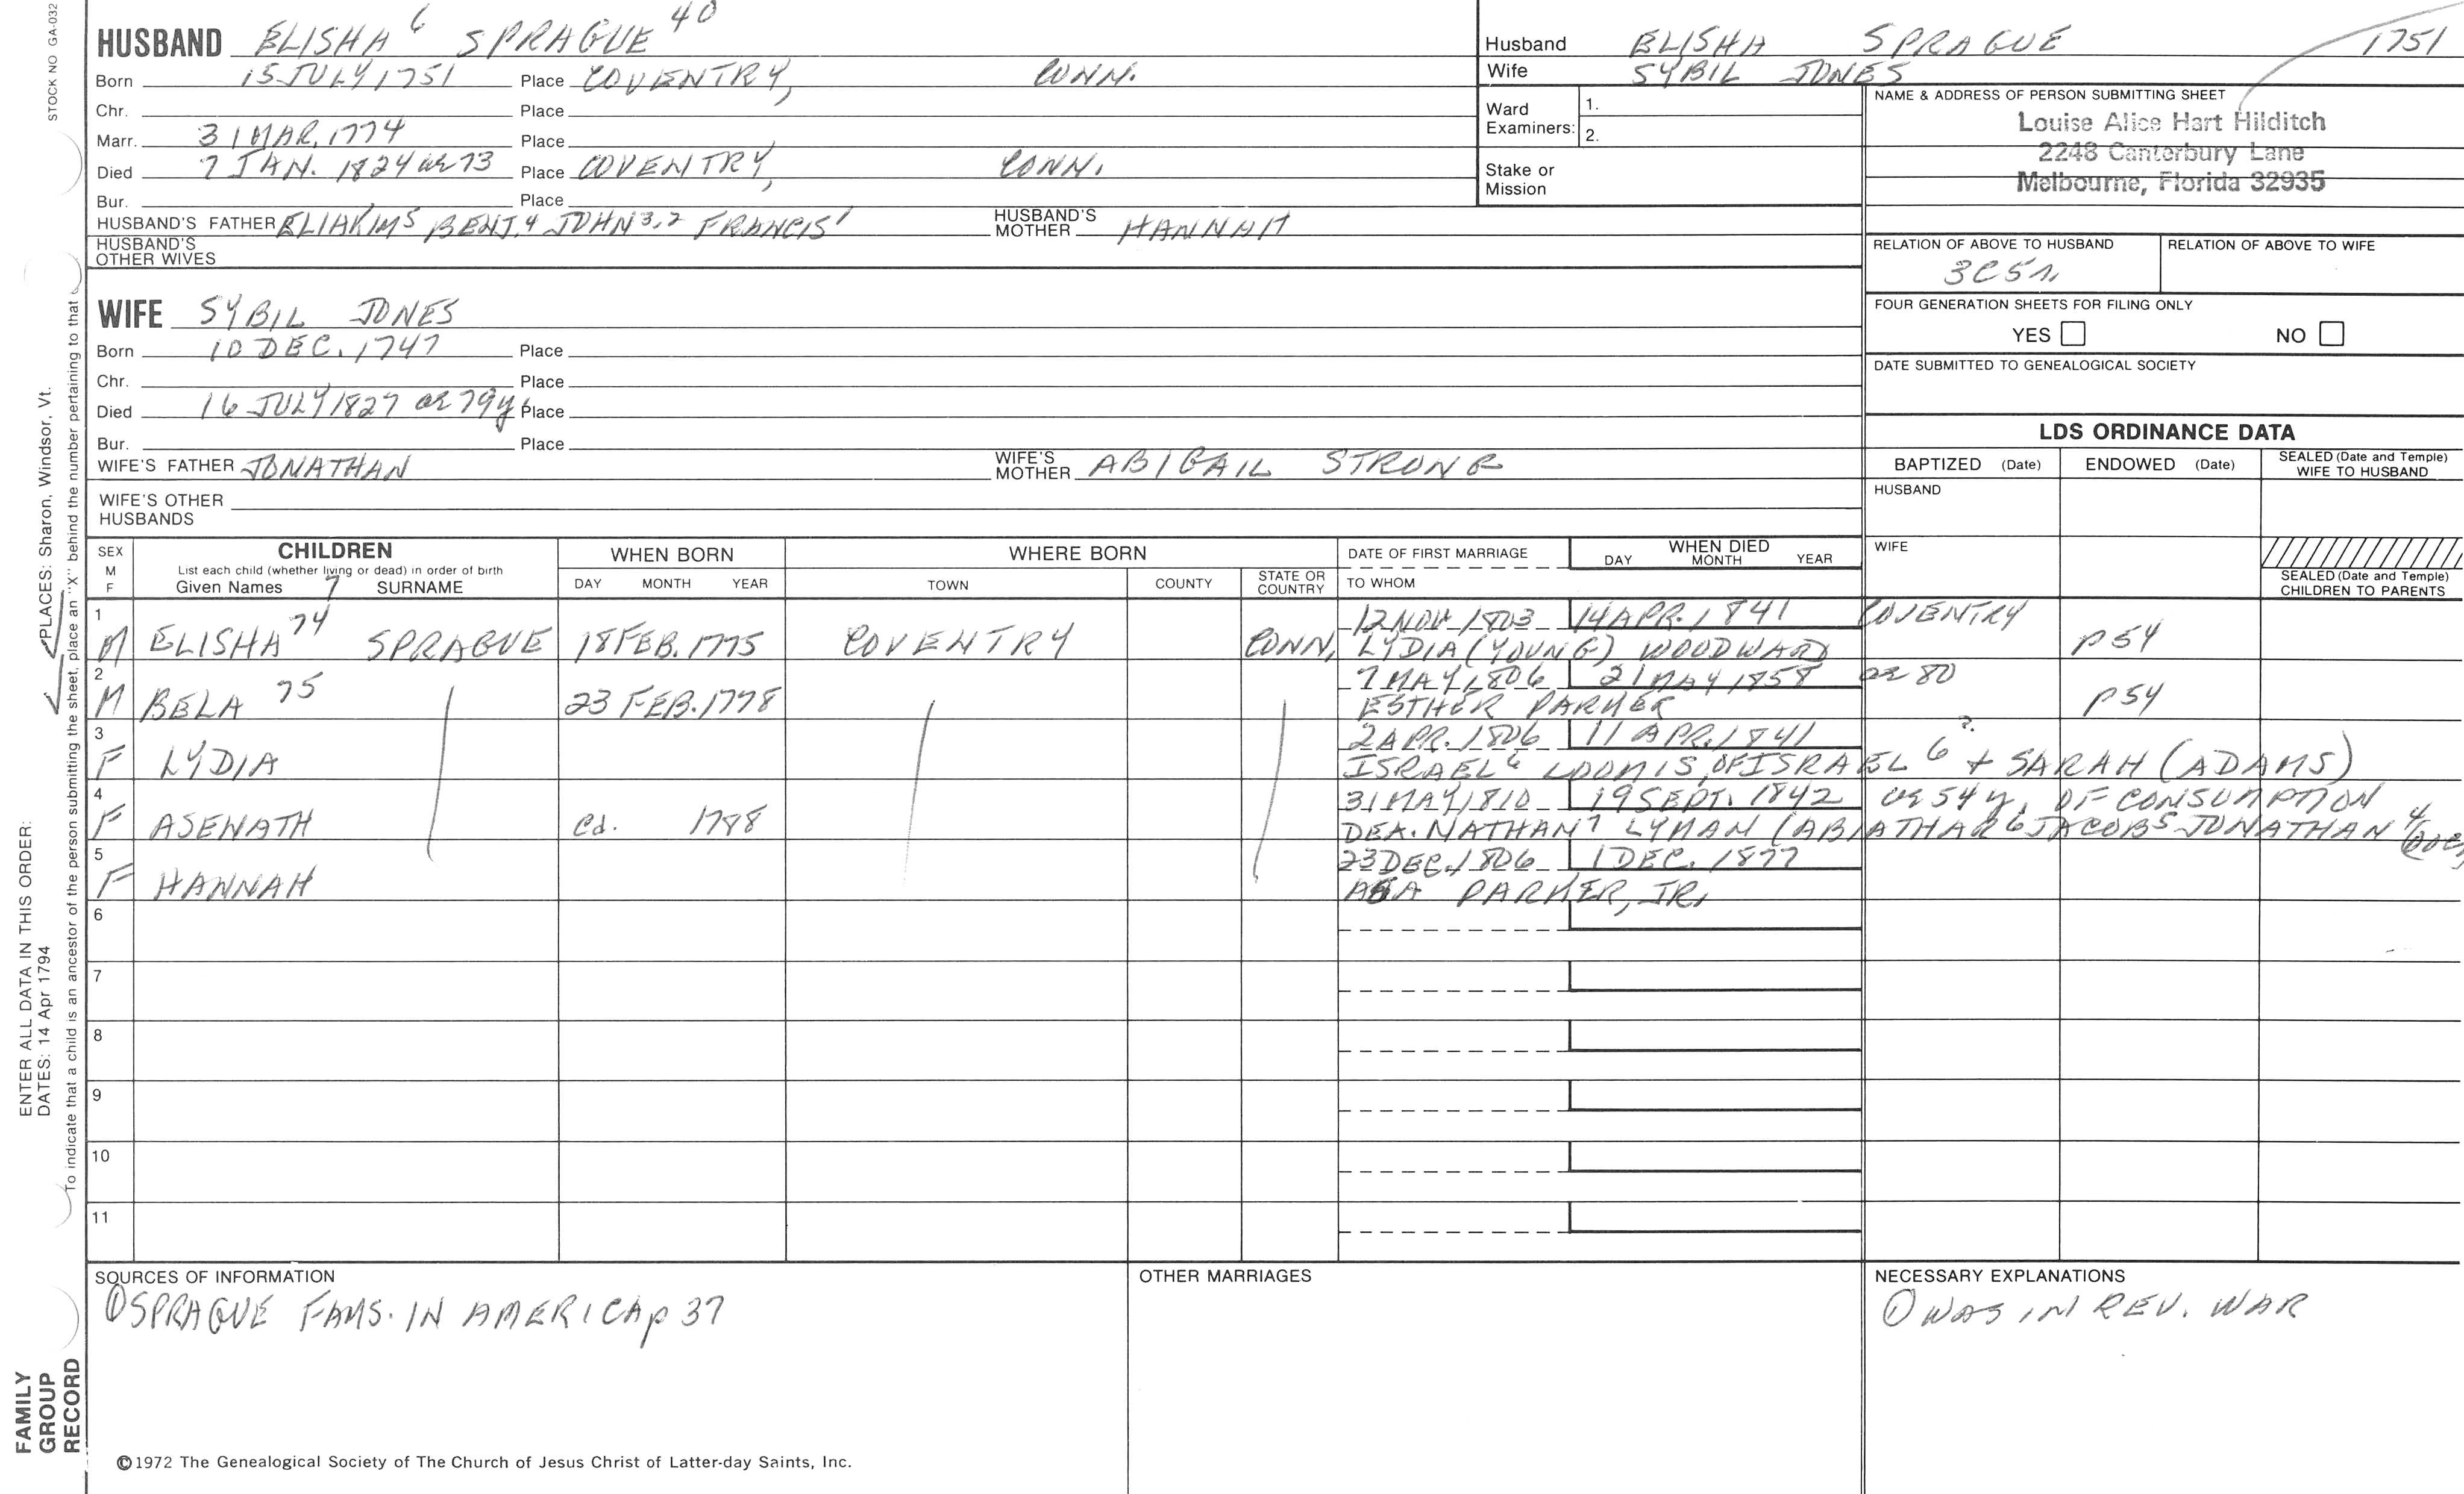 STOCK NO GA-032
HUSBAND ELISHA 6 SPRAGUE 40
Born 15 JULY 1751 Place COVENTRY, CONN.
Chr. Place
Marr. 31 MAR, 1774 Place
Died 7 JAN. 1824 ae 73 Place COVENTRY, CONN.
Bur. Place
HUSBAND'S FATHER ELIAKIM5 BENJ.4 JOHN3,2 FRANCIS1 HUSBAND'S MOTHER HANNAH
HUSBAND'S OTHER WIVES
Husband ELISHA SPRAGUE 1751
Wife SYBIL JONES
Ward Examiners: 1.
2.
Stake or Mission
NAME & ADDRESS OF PERSON SUBMITTING SHEET
Louise Alice Hart Hilditch
2248 Canterbury Lane
Melbourne, Florida 32935
RELATION OF ABOVE TO HUSBAND RELATION OF ABOVE TO WIFE
3C5r.
FOUR GENERATION SHEETS FOR FILING ONLY
YES NO
DATE SUBMITTED TO GENEALOGICAL SOCIETY
WIFE SYBIL JONES
Born 10 DEC. 1747 Place
Chr. Place
Died 16 JULY 1827 ae 79y Place
Bur. Place
WIFE'S FATHER JONATHAN WIFE'S MOTHER ABIGAIL STRONG
WIFE'S OTHER HUSBANDS
LDS ORDINANCE DATA
BAPTIZED (Date) ENDOWED (Date) SEALED (Date and Temple) WIFE TO HUSBAND
HUSBAND
WIFE
SEALED (Date and Temple) CHILDREN TO PARENTS
SEX M F
CHILDREN
List each child (whether living or dead) in order of birth
Given Names 7 SURNAME
WHEN BORN
DAY MONTH YEAR
WHERE BORN
TOWN COUNTY STATE OR COUNTRY
DATE OF FIRST MARRIAGE
TO WHOM
WHEN DIED
DAY MONTH YEAR
1 12 NOV 1803 14 APR. 1841 COVENTRY
M ELISHA 74 SPRAGUE 18 FEB. 1775 COVENTRY CONN. LYDIA (YOUNG) WOODWARD p54
2 7 MAY 1806 21 MAY 1858 ae 80
M BELA 75 23 FEB. 1778 ESTHER PARKER p54
3 2 APR. 1806 11 APR. 1841 ?
F LYDIA ISRAEL6 LOOMIS, OF ISRAEL 6 + SARAH (ADAMS)
4 31 MAY 1810 19 SEPT. 1842 ae 54 y. OF CONSUMPTION
F ASENATH Cd. 1788 DEA. NATHAN7 LYMAN (ABIATHAR6 JACOB5 JONATHAN 4
5 23 DEC. 1806 1 DEC. 1877
F HANNAH ASA PARKER, JR.
6
7
8
9
10
11
SOURCES OF INFORMATION
① SPRAGUE FAMS. IN AMERICA p 37
OTHER MARRIAGES
NECESSARY EXPLANATIONS
① WAS IN REV. WAR
©1972 The Genealogical Society of The Church of Jesus Christ of Latter-day Saints, Inc.
FAMILY GROUP RECORD
ENTER ALL DATA IN THIS ORDER:
DATES: 14 Apr 1794 PLACES: Sharon, Windsor, Vt.
To indicate that a child is an ancestor of the person submitting the sheet, place an "X" behind the number pertaining to that